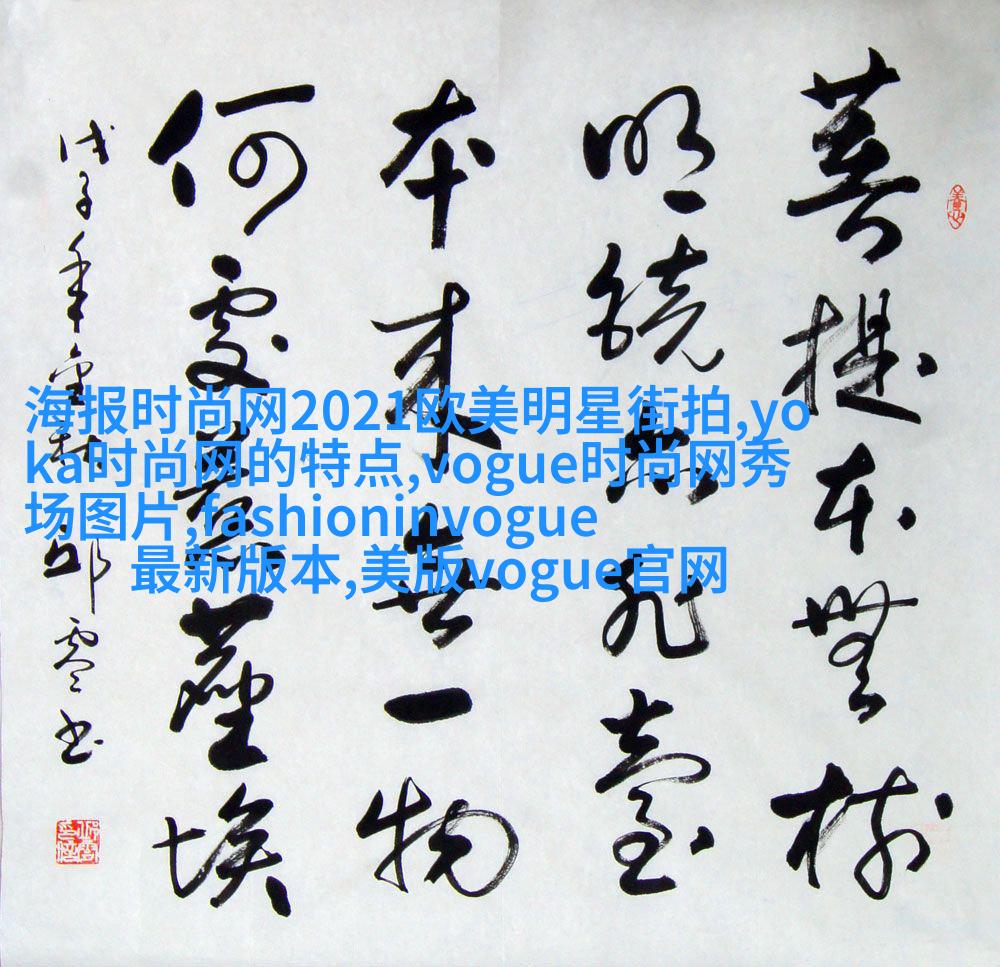 菩提本無樹
明鏡亦非臺
本来無一物
何處惹塵埃
戊子年金秋邱零书
海报时尚网2021欧美明星街拍,yo
ka时尚网的特点,vogue时尚网秀
场图片,fashioninvogue
最新版本,美版vogue官网